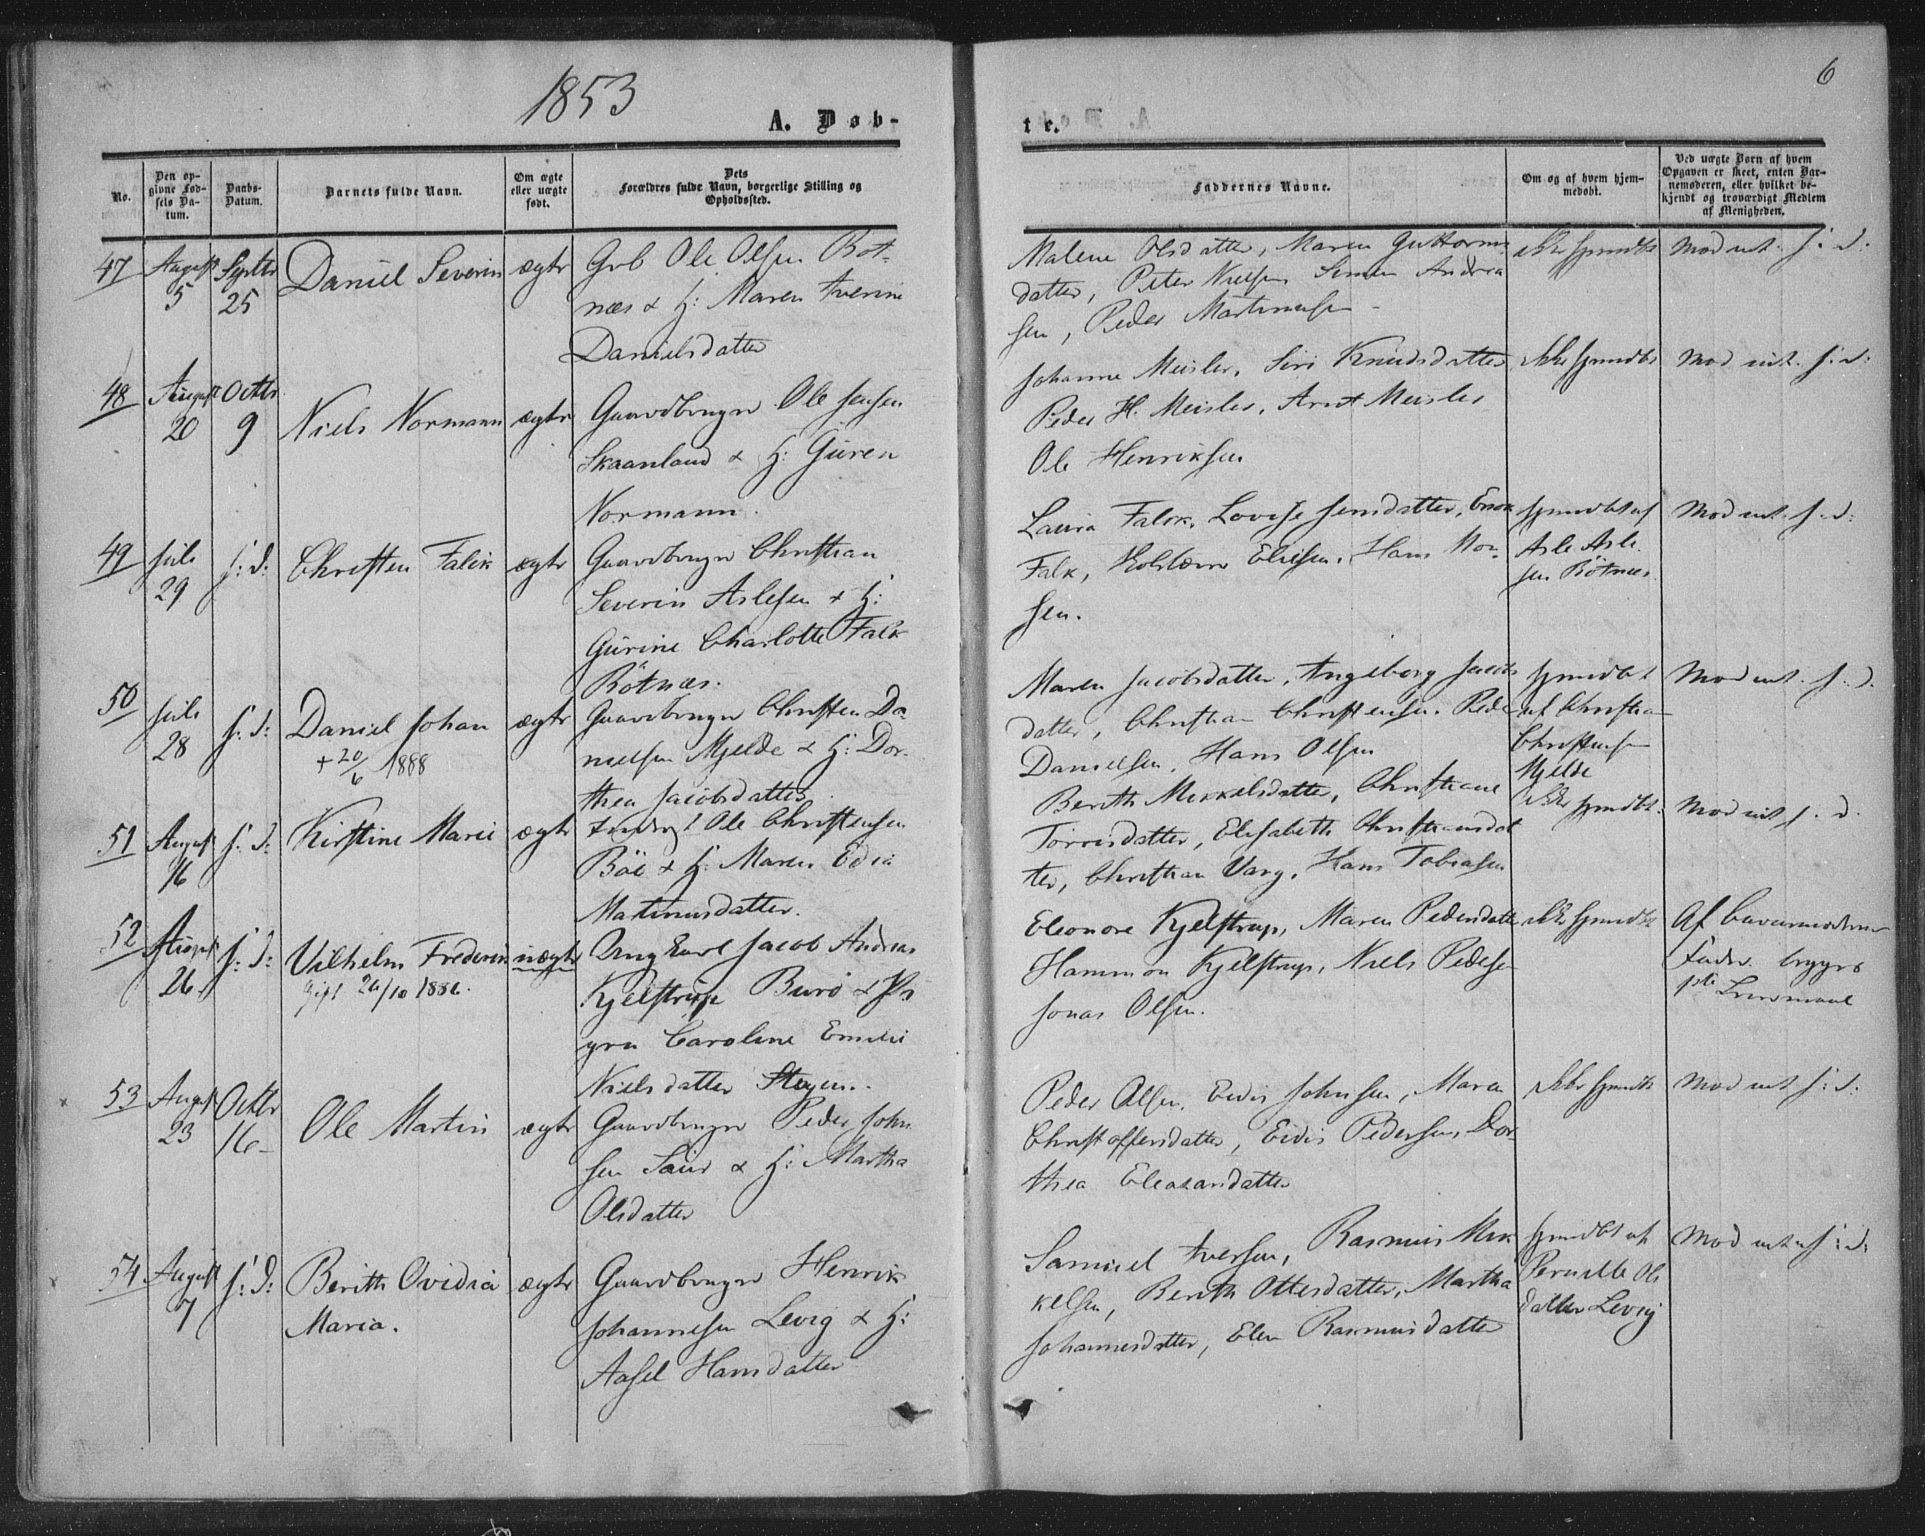 1853
6
A. Døb-
te.
No.
Den op-
givne Fød-
sels Da-
tum.
Daabs-
Datum.
Barnets fulde Navn.
Om ægte
eller uægte
født.
Dets
Forældres fulde Navn, borgerlige Stilling og
Opholdssted.
Faddernes Navne.
Om og af hvem hjem-
medøbt.
Ved uægte Børn af hvem
Opgaven er skeet, enten Bar-
nemoderen, eller hvilket be-
kjendt og troværdigt Medlem
af Menigheden.
47
August
5
Septbr
25
Daniel Severin
ægte
Gvb Ole Olsen Bot-
næs & H: Maren Iverine
Danielsdatter
Malene Olsdatter, Maren Guttorms
datter, Peter Nielsen, Simon Andrea
sen, Peder Martinusen
48
August
20
Octbr
9
Niels Normann
ægte
Gaardbruger Ole Jensen
Skaanland & H: Guren
Normann.
Johanne Meisler, Siri Knudsdatter
Peder H. Meisler, Arnt Meisler
Ole Henriksen
49
Juli
29
s: d:
Christen Falck
ægte
Gaardbruger Christian
Severin Aslesen & H:
Gurine Charlotte Falk
Bötnæs.
Laura Falck, Lovise Jensdatter,
Falk, Elissen, Hans Mon-
sen.
hjemdøbt af
Asle Asle-
sen Bötnæs
50
Juli
28
s: d:
Daniel Johan
+ 20/6 1888
ægte
Gaardbruger Christen Da-
nielsen Mjelde & H: Dor-
thea Jacobsdatter
Maren Jacobsdatter, Ingeborg Jacobs
datter, Christian Christensen, Peder
Danielsen, Hans Olsen
hjemdøbt
af Christian
Christensen
Mjelde
51
August
16
s: d:
Kirstine Marie
ægte
Inderst Ole Christensen
Böe & H: Maren Edia
Martinusdatter.
Berith Mikkelsdatter, Christiane
Torrisdatter, Elisabeth Christiansdat
ter, Christian Vang, Hans Tobiasen
52
August
26
s: d:
Vilhelm Frederik
Gift 26/10 1886.
uægte
Ungkarl Jacob Andreas
Kjelstrup Burö & Pi-
gen Caroline Emilie
Nielsdatter Steyen.
Eleonore Kjelstrup, Maren Pedersdatter
Hammon Kjelstrup, Niels Pedersen
Jonas Olsen.
53
August
23
Octbr
16
Ole Martin
ægte
Gaardbruger Peder John
sen Saur & H: Martha
Olsdatter
Peder Olsen, Evis Johnsen, Maren
Christoffersdatter, Eidis Pedersen, Dor-
thea Eleasardatter
54
August
7
s: d:
Berith Ovidia
Maria.
ægte
Gaardbruger Henrik
Johannesen Levig & H:
Aasel Hansdatter
Samuel Iversen, Rasmus Mik
kelsen, Berith Ottesdatter, Martha
Johannesdatter, Elen Rasmusdatter
hjemdøbt af
Pernille Ols
datter Levig